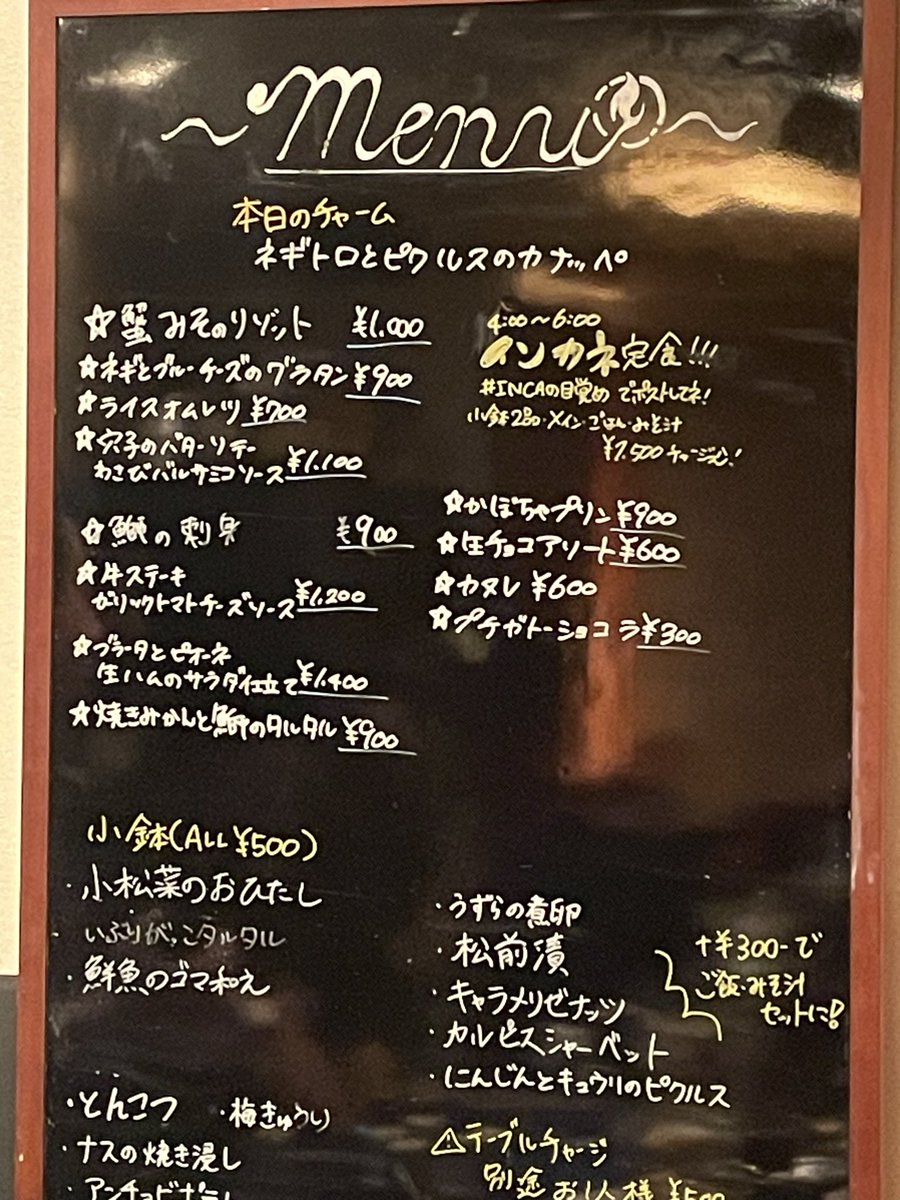 ~Menu~
本日のチャーム
ネギトロとピクルスのカナッペ
☆蟹みそのリゾット ¥1.000
☆ネギとブルーチーズのグラタン ¥900
☆ライスオムレツ ¥700
☆穴子のバターソテー
わさびバルサミコソース ¥1.100
☆鰤の刺身 ¥900
☆牛ステーキ
ガリックトマトチーズソース ¥1.200
☆ブラータとピオーネ
生ハムのサラダ仕立て ¥1.400
☆焼きみかんと鰤のタルタル ¥900
4:00~6:00
インカネ定食!!!
#INCAの目覚め でポストしてネ!
小鉢2品・メイン・ごはん・みそ汁
¥1.500 チャージ込!
☆かぼちゃプリン ¥900
☆生チョコアソート ¥600
☆カヌレ ¥600
☆プチガトーショコラ ¥300
小鉢(ALL ¥500)
・小松菜のおひたし
いぶりがっこタルタル
・鮮魚のゴマ和え
・うずらの煮卵
・松前漬
・キャラメリゼナッツ
・カルピスシャーベット
・にんじんとキュウリのピクルス
+¥300-で
ご飯・みそ汁
セットに!
・とんこつ ・梅きゅうり
・ナスの焼き浸し
・アンチョビポテ
⚠テーブルチャージ
別途お1人様 ¥500